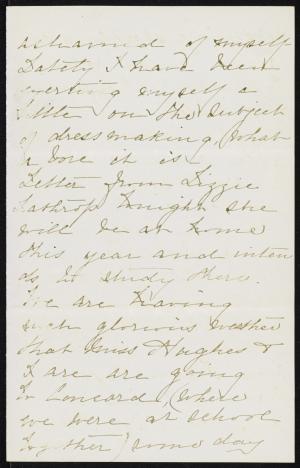 ashamed of myself
Lately I have been
exerting myself a
little on the subject
of dressmaking, what
a bore it is
Letter from Lizzie
Lathrop tonight she
will be at home
this year and inten
ds to study there.
We are having
such glorious weather
that Miss Hughes &
I are are going
to Concord, (where
we were at school
together) some day